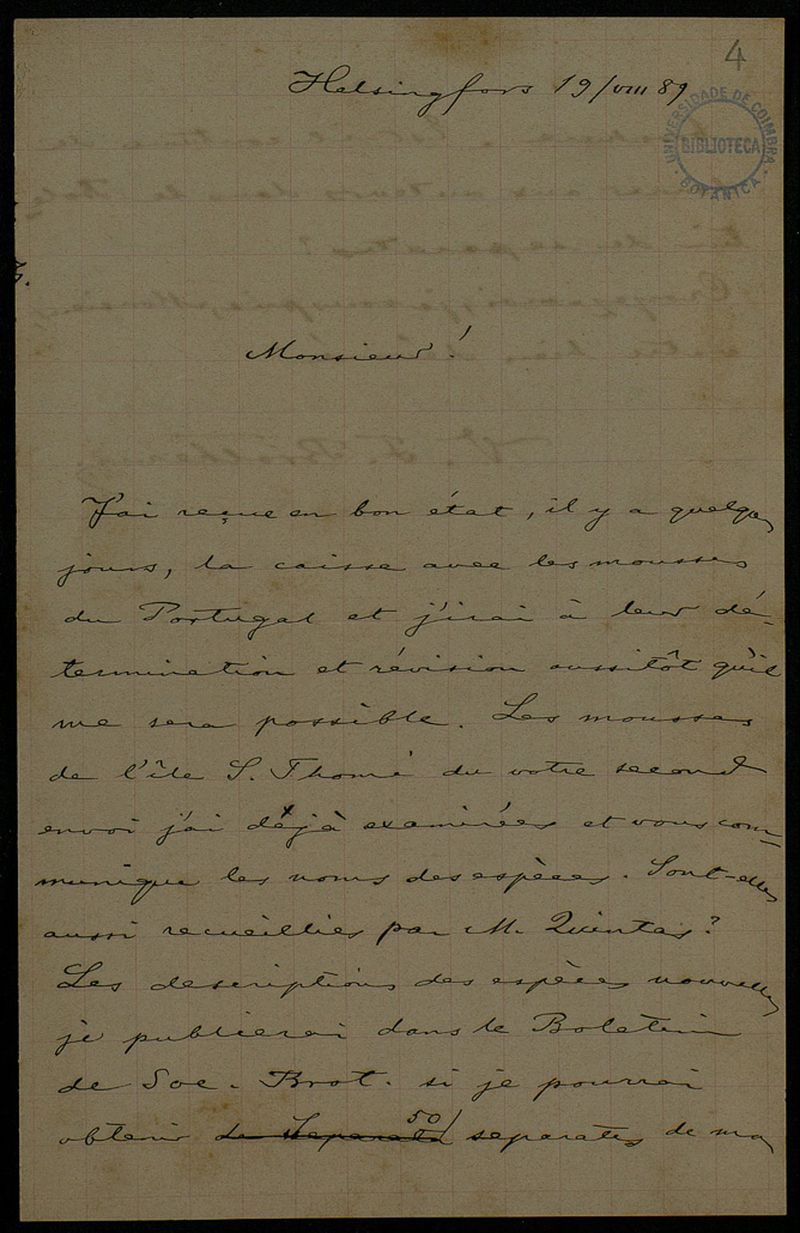 4
Helsingfors 19/VIII 89
UNIVERSIDADE DE COIMBRA
BIBLIOTECA
BOTANICA
Monsieur!
J'ai reçue en bon état, il y a quelques
jours, la caisse avec les mousses
du Portugal et j'irai à leur dé-
termination et révision aussitôt qu'il
me sera possible. Les mousses
de l'île S. Thomé du votre second
envoi j'ai déjà examinées et vous com-
munique les noms des espèces. Sont-elles
aussi recueillies par M. Quintas?
Les descriptions des espèces nouvelles
je publierai dans le Boletin
de Soc. Brot. si je pourrai
obtenir de Separata 50 separates de ma